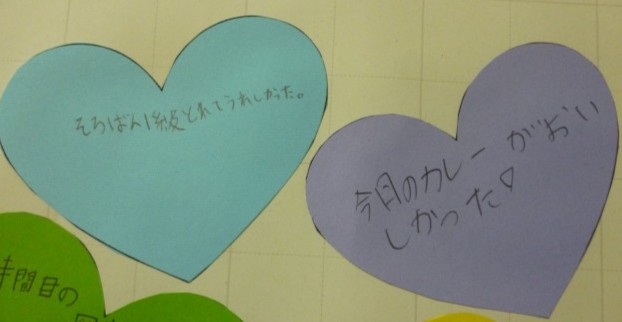 そろばん1級とれてうれしかった。
今月のカレーがおい
しかった♡
時間目の